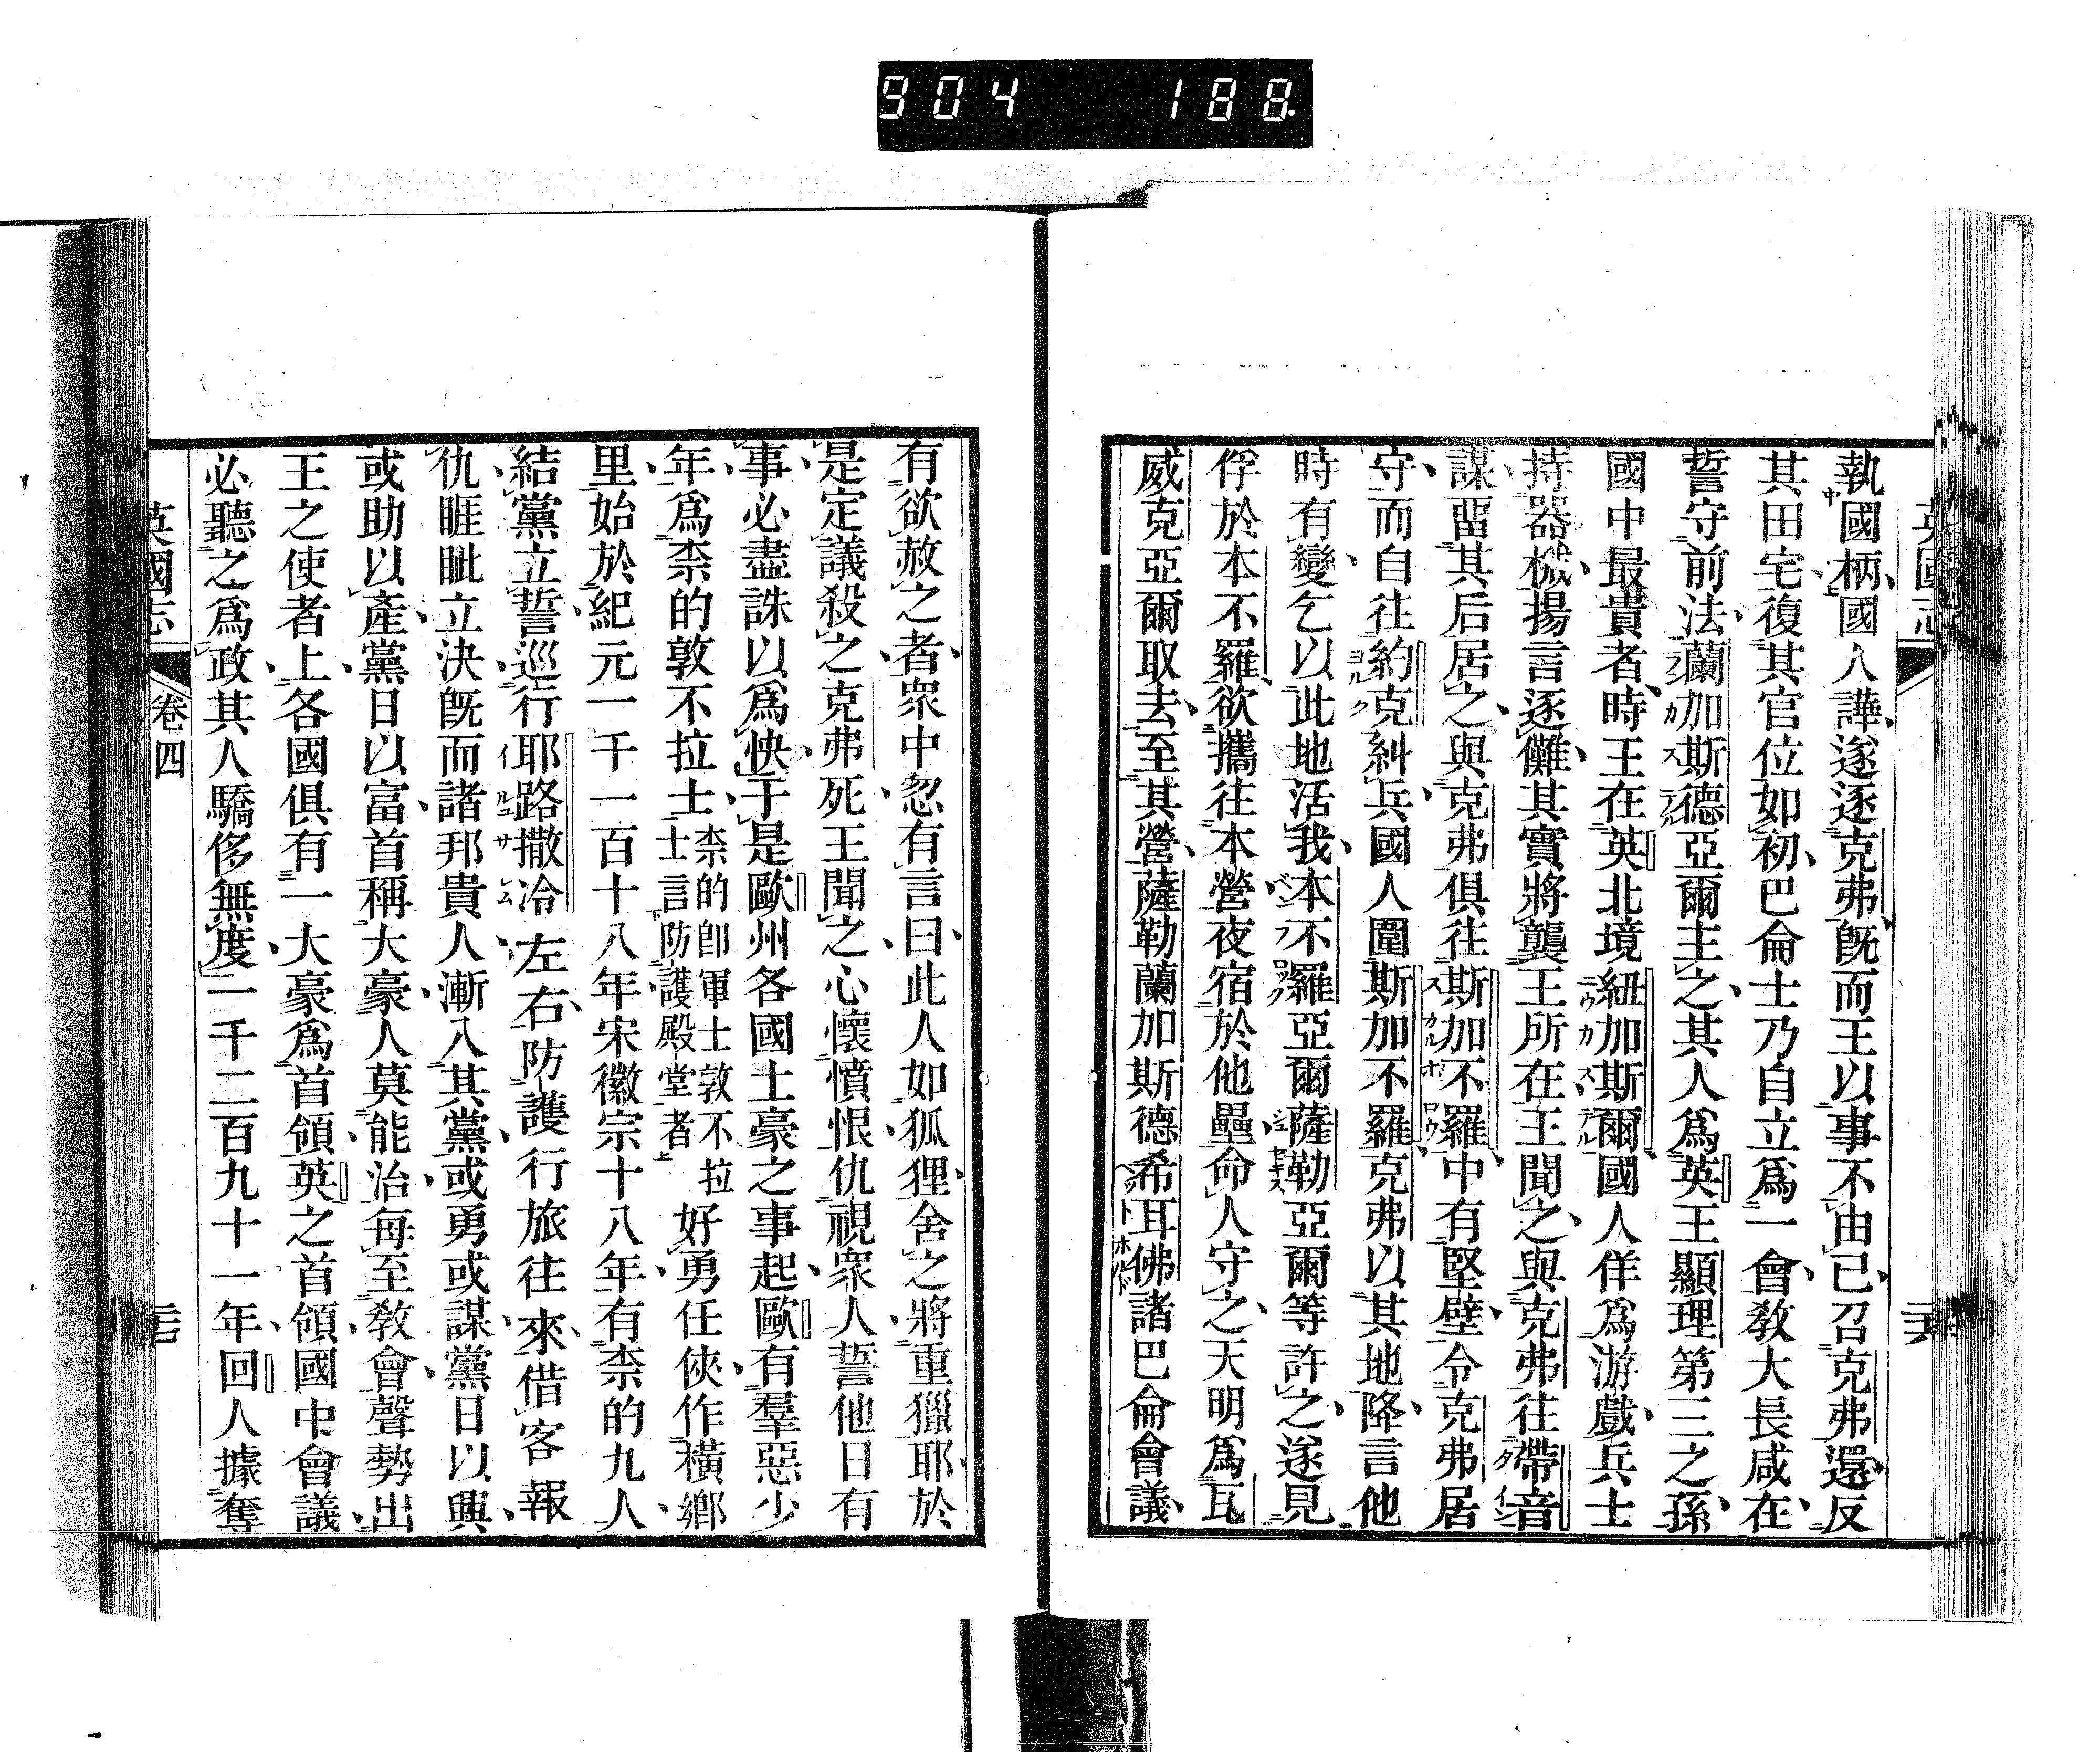 904 188
英國志
執國柄國人譁遂逐克弗既而王以事不由己召克弗還反
其田宅復其官位如初巴侖士乃自立爲一會教大長咸在
誓守前法蘭加斯德亞爾主之其人爲英王顯理第三之孫
國中最貴者時王在英北境紐加斯爾國人佯爲游戲兵士
持器械揚言逐儺其實將襲王所在王聞之與克弗往帶音
謀留其后居之與克弗俱往斯加不羅中有堅壁令克弗居
守而自往約克糾兵國人圍斯加不羅克弗以其地降言他
時有變乞以此地活我本不羅亞爾薩勒亞爾等許之遂見
俘於本不羅欲攜往本營夜宿於他壘命人守之天明爲瓦
威克亞爾取去至其營薩勒蘭加斯德希耳佛諸巴侖會議
有欲赦之者衆中忽有言曰此人如狐狸舍之將重獵耶於
是定議殺之克弗死王聞之心懷憤恨仇視衆人誓他日有
事必盡誅以爲快于是歐州各國土豪之事起歐有羣惡少
年爲柰的敦不拉士柰的卽軍士敦不拉士言防護殿堂者好勇任俠作橫鄉
里始於紀元一千一百十八年宋徽宗十八年有柰的九人
結黨立誓巡行耶路撒冷左右防護行旅往來借客報
仇睚眦立決既而諸邦貴人漸入其黨或勇或謀黨日以興
或助以產黨日以富首稱大豪人莫能治每至教會聲勢出
王之使者上各國俱有一大豪爲首領英之首領國中會議
必聽之爲政其人驕侈無度一千二百九十一年回人據奪
英國志 卷四